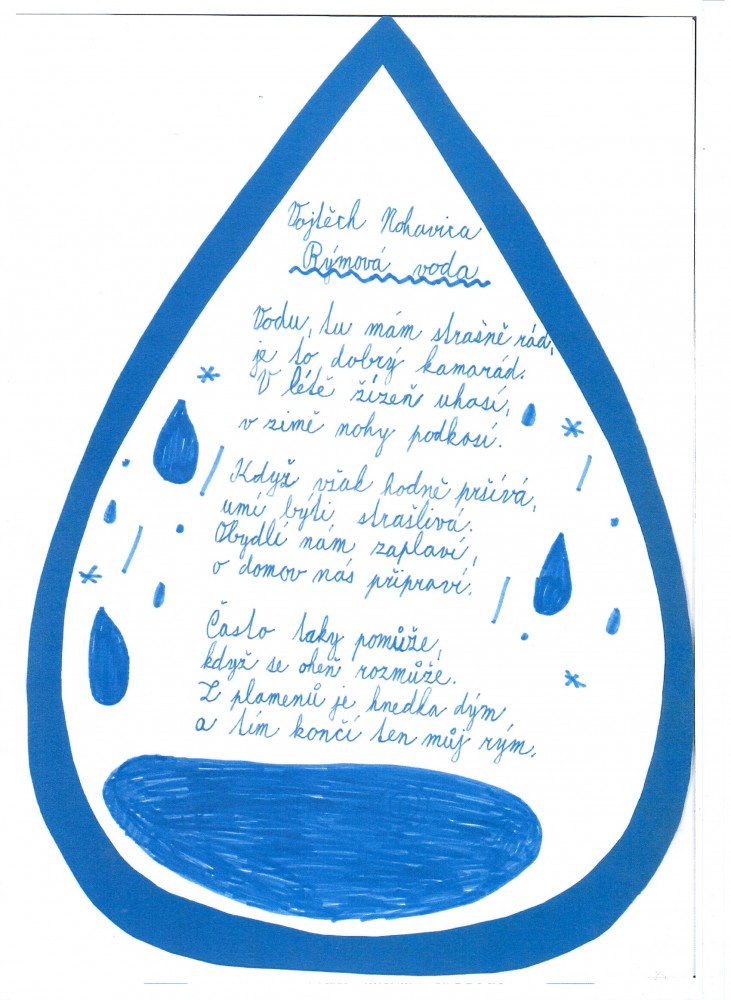 Vojtěch Nohavica
Rýmová voda
Vodu, tu mám strašně rád,
je to dobrý kamarád.
V létě žízeň uhasí,
v zimě nohy podkosí.
Když však hodně pršívá,
umí býti strašlivá.
Obydlí nám zaplaví,
o domov nás připraví.
Často taky pomůže,
když se oheň rozmůže.
Z plamenů je hnedka dým,
a tím končí ten můj rým.